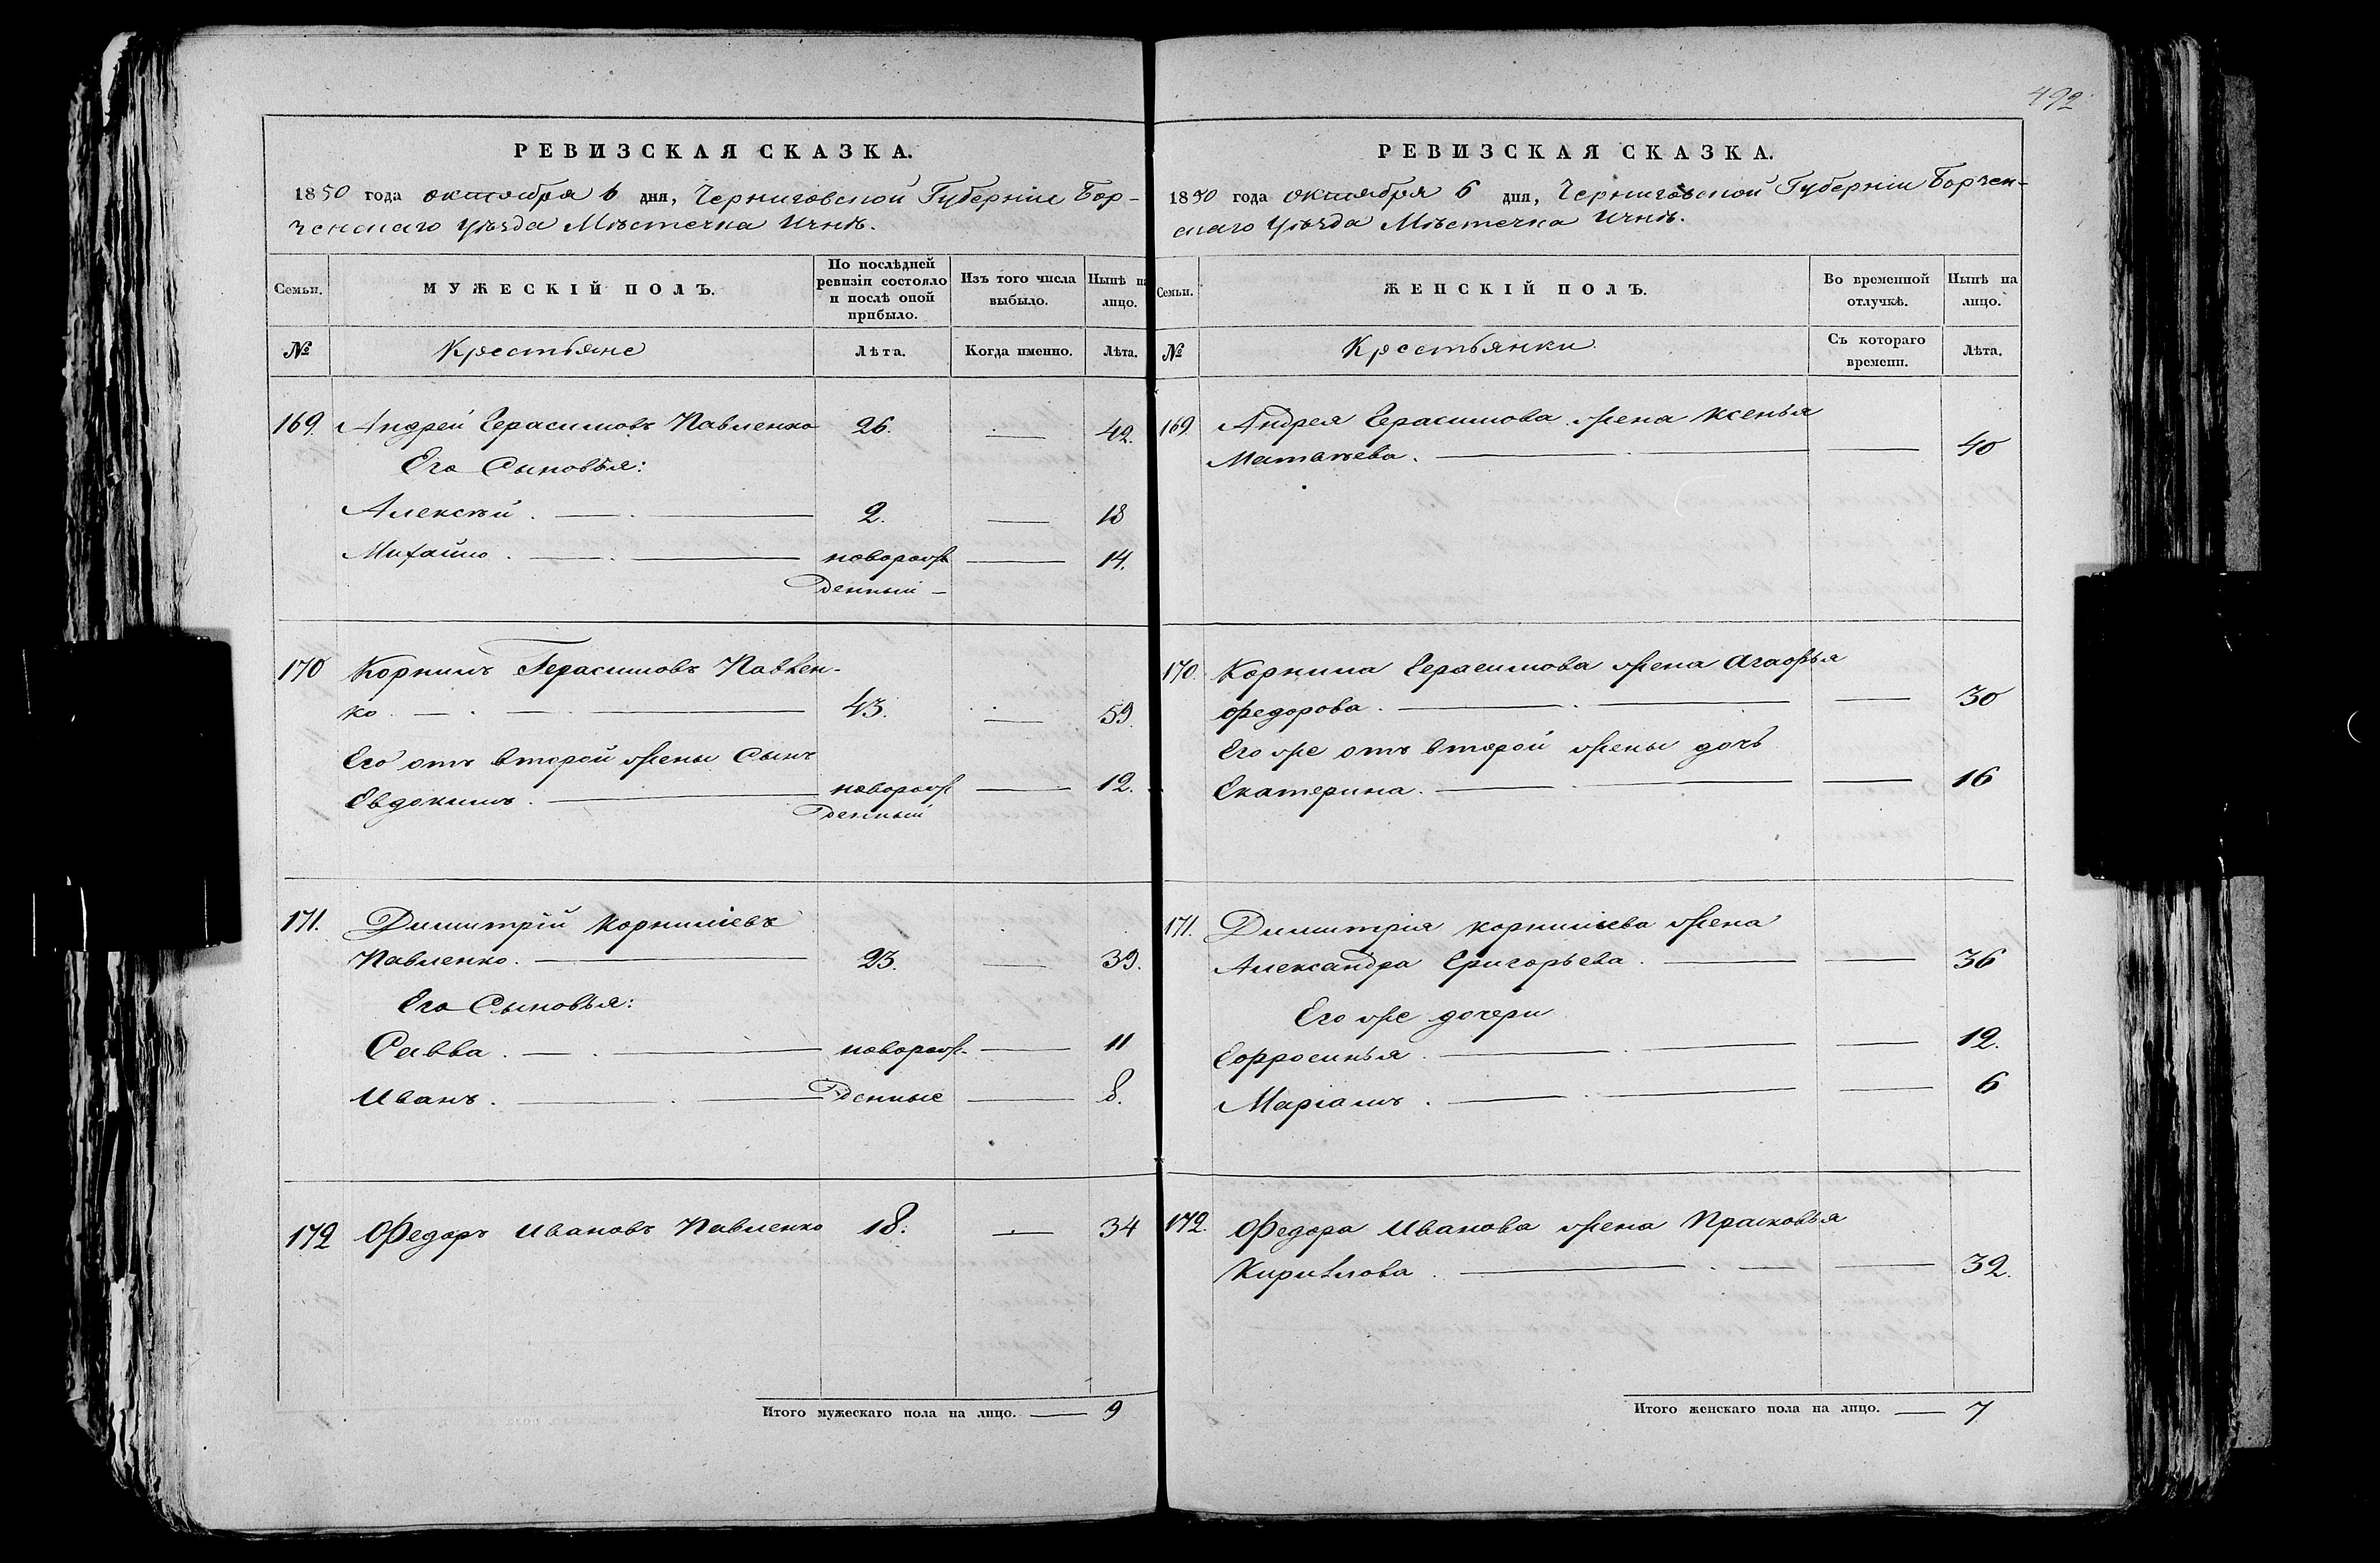 РЕВИЗСКАЯ СКАЗКА.
1850 года октября 6 дня, Черниговской Губерніи Бор-
зенскаго уѣзда Мѣстечка Ични.
Семьи. МУЖЕСКІЙ ПОЛЪ. По послѣдней ревизіи состояло и послѣ оной прибыло. Изъ того числа выбыло. Нынѣ на лицо.
№ Крестьяне Лѣта. Когда именно. Лѣта.
169. Андрей Герасимовъ Павленко 26. — 42.
Его Сыновья:
Алексѣй. — 2. — 18
Михайло. — новорож- — 14.
денный —
170 Корнилъ Герасимовъ Павлен-
ко. — 43. — 59.
Его отъ второй жены Сынъ
Евдокимъ. — новорож- — 12.
денный
171. Димитрій Корниліевъ
Павленко. — 23. — 39.
Его Сыновья:
Савва. — новорож- — 11
Иванъ. — денные — 8.
172 Федоръ Ивановъ Павленко 18. — 34
Итого мужескаго пола на лицо. — 9
492
РЕВИЗСКАЯ СКАЗКА.
1850 года октября 6 дня, Черниговской Губерніи Борзен-
скаго уѣзда Мѣстечка Ични.
Семьи. ЖЕНСКІЙ ПОЛЪ. Во временной отлучкѣ. Нынѣ на лицо.
№ Крестьянки Съ котораго времени. Лѣта.
169. Андрея Герасимова жена Ксенья
Матвѣева. — 40
170. Корнила Герасимова жена Агафья
Федорова. — 30
Его же отъ второй жены дочь
Екатерина. — 16
171. Димитрія Корниліева жена
Александра Григорьева. — 36
Его же дочери
Ефросинья. — 12.
Маріамъ. — 6
172. Федора Иванова жена Прасковья
Кирилова. — 32.
Итого женскаго пола на лицо. — 7